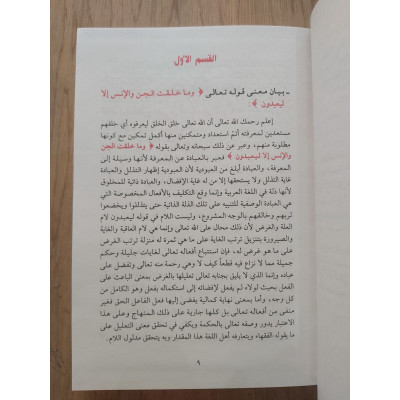 القسم الأول
ـ بيـان معنى قوله تعـالى ﴿ وما خلقت الجن والإنس إلا
ليعبدون ﴾ :
إعلم رحمك الله أن الله تعالى خلق الخلق ليعرفوه أي خلقهم
مستعدين لمعرفته أتم استعداد ومتمكنين منها أكمل تمكين مع كونها
مطلوبة منهم، وعبر عن ذلك سبحانه وتعالى بقوله ﴿ وما خلقت الجن
والإنس إلا ليعبدون ﴾ فعبر بالعبادة عن المعرفة لأنها وسيلة إلى
المعرفة، والعبادة أبلغ من العبودية لأن العبودية إظهار التذلل والعبادة
غاية التذلل ولا يستحقها إلا من له غاية الإفضال، والعبادة ذاتية للمخلوق
لأنها ذلة في اللغة العربية وإنما وقع التكليف بالأفعال المخصوصة التي
هي العبادة الوصفية للتنبيه على تلك الذلة الذاتية حتى يتذللوا ويخضعوا
لربهم وخالقهم بالوجه المشروع، وليست اللام في قوله ليعبدون لام
العلة والغرض لأن ذلك محال على الله تعالى وإنما هي لام العاقبة والغاية
والصيرورة بتنزيل ترتب الغاية على ما هي ثمرة له منزلة ترتب الغرض
على ما هو غرض له، فإن استتباع أفعاله تعالى لغايات جليلة وحكم
جميلة مما لا نزاع فيه قطعاً كيف لا وهي رحمة منه تعالى وتفضل على
عباده وإنما الذي لا يليق بجنابه تعالى تعليلها بالغرض بمعنى الباعث على
الفعل بحيث لولاه لم يفعل لإفضائه إلى استكماله بفعل وهو الكامل من
كل وجه، وأما بمعنى نهاية كمالية يفضي إليها فعل الفاعل الحق فغير
منفي من أفعاله تعالى بل كلها جارية على ذلك المنهاج وعلى هذا
الاعتبار يدور وصفه تعالى بالحكمة ويكفي في تحقق معنى التعليل على
ما يقوله الفقهاء ويتعارفه أهل اللغة هذا المقدار وبه يتحقق مدلول اللام.
٩